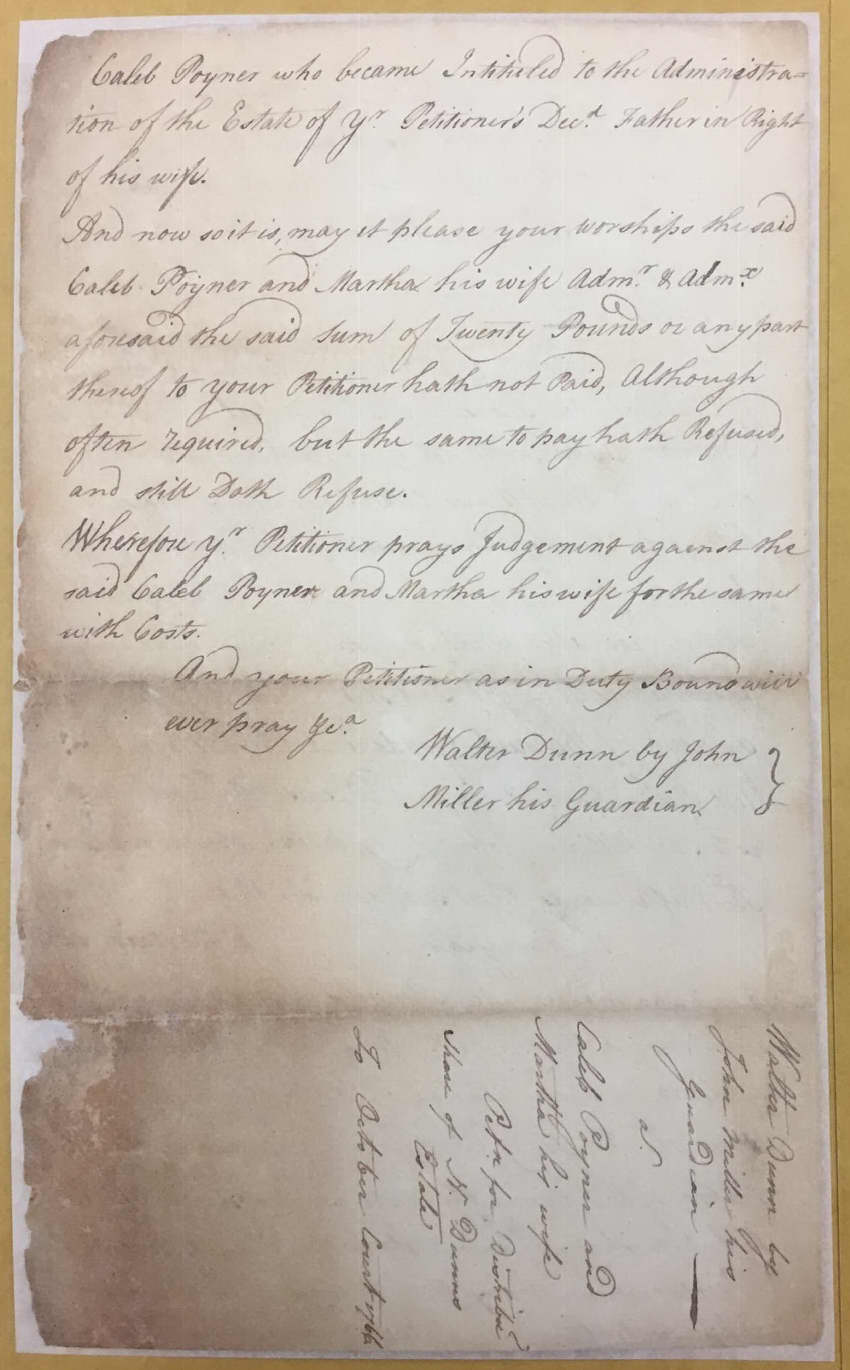 Caleb Poyner who became Intituled to the Administra=
tion of the Estate of yr. Petitioner's Decd. Father in Right
of his wife.
And now so it is, may it please your worships the said
Caleb Poyner and Martha his wife Admr. & Admx.
aforesaid the said Sum of Twenty Pounds or any part
thereof to your Petitioner hath not Paid, Although
often required, but the same to pay hath Refused,
and still Doth Refuse.
Wherefore yr. Petitioner prays Judgement against the
said Caleb Poyner and Martha his wife for the same
with Costs.
And your Petitioner as in Duty Bound will
ever pray &ca.
Walter Dunn by John
Miller his Guardian
Walter Dunn by
John Miller his
Guardian
vs.
Caleb Poyner and
Martha his wife
Petn. for Distribn.
Share of N. Dunns
Estate
To October Court 1766